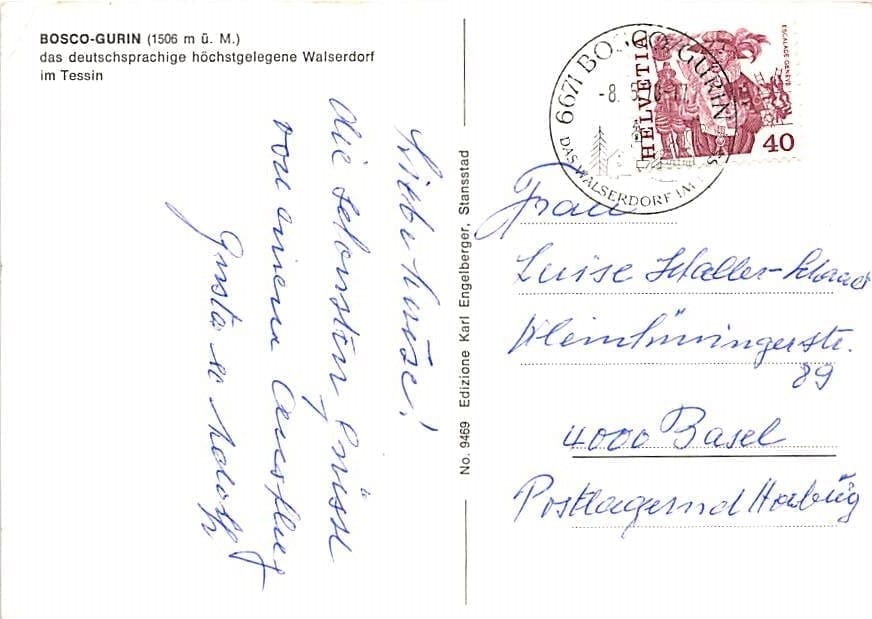 BOSCO-GURIN (1506 m ü. M.)
das deutschsprachige höchstgelegene Walserdorf
im Tessin
Liebi Luise!
die schönsten Grüsse
von einem Ausflug
Gusta & Adolf
No. 9469 Edizione Karl Engelberger, Stansstad
6671 BOSCO-GURIN
-8.
DAS WALSERDORF IM
HELVETIA
ESCALADE GENÈVE
40
Frau
Luise Schaller-
Kleinhüningerstr.
89
4000 Basel
Postlagernd